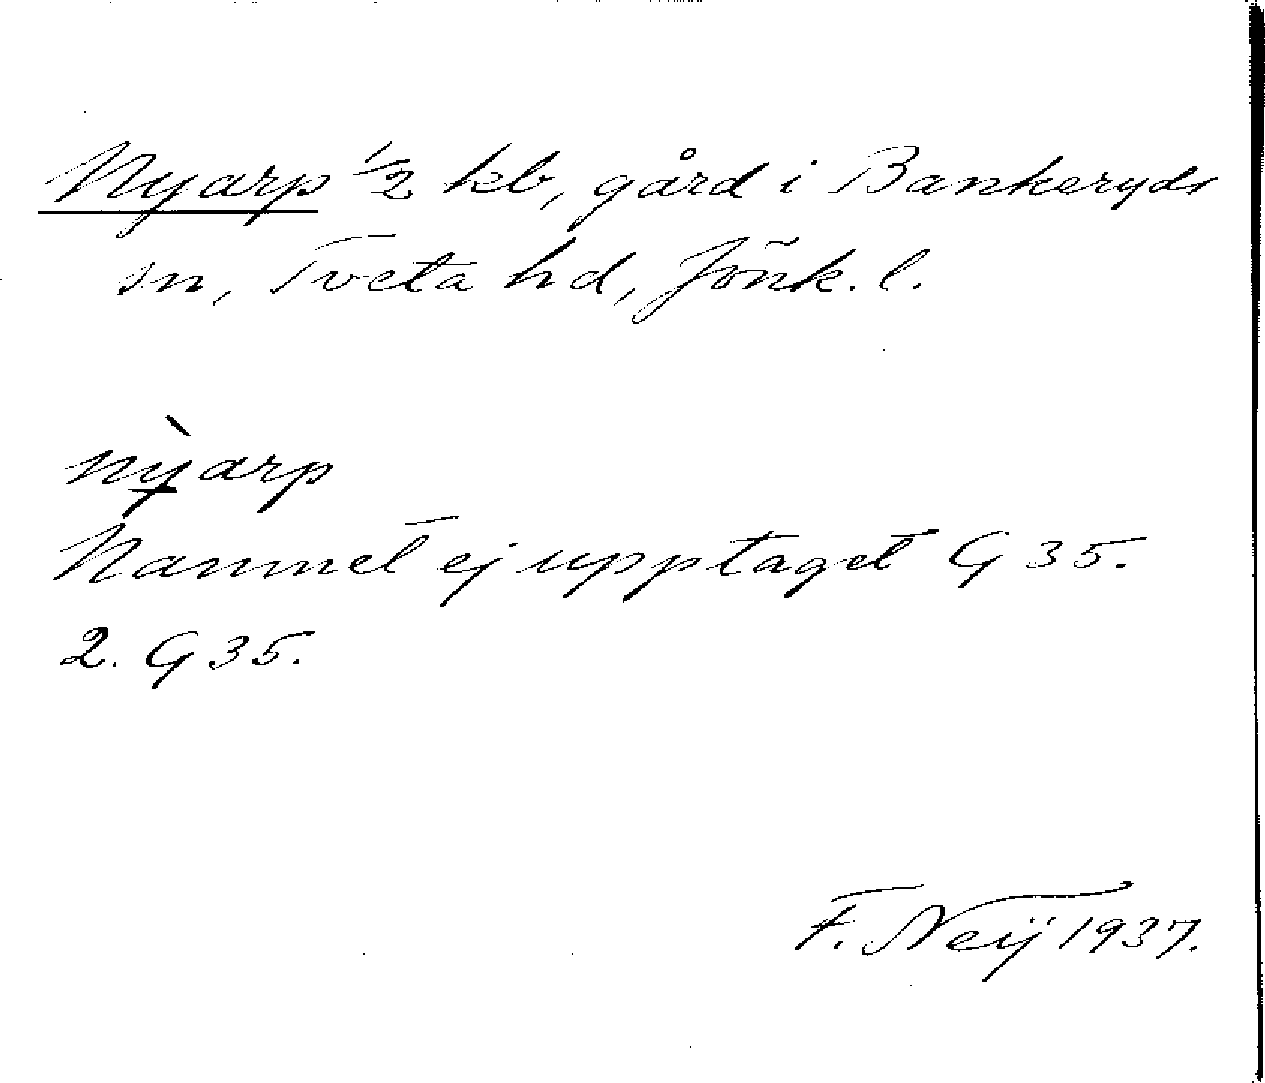 Nyarp 1/2 kb, gård i Bankeryds
sn, Tveta hd, Jönk. l.
nỳarp
Namnet ej upptaget G 35.
2. G 35.
F. Neij 1937.